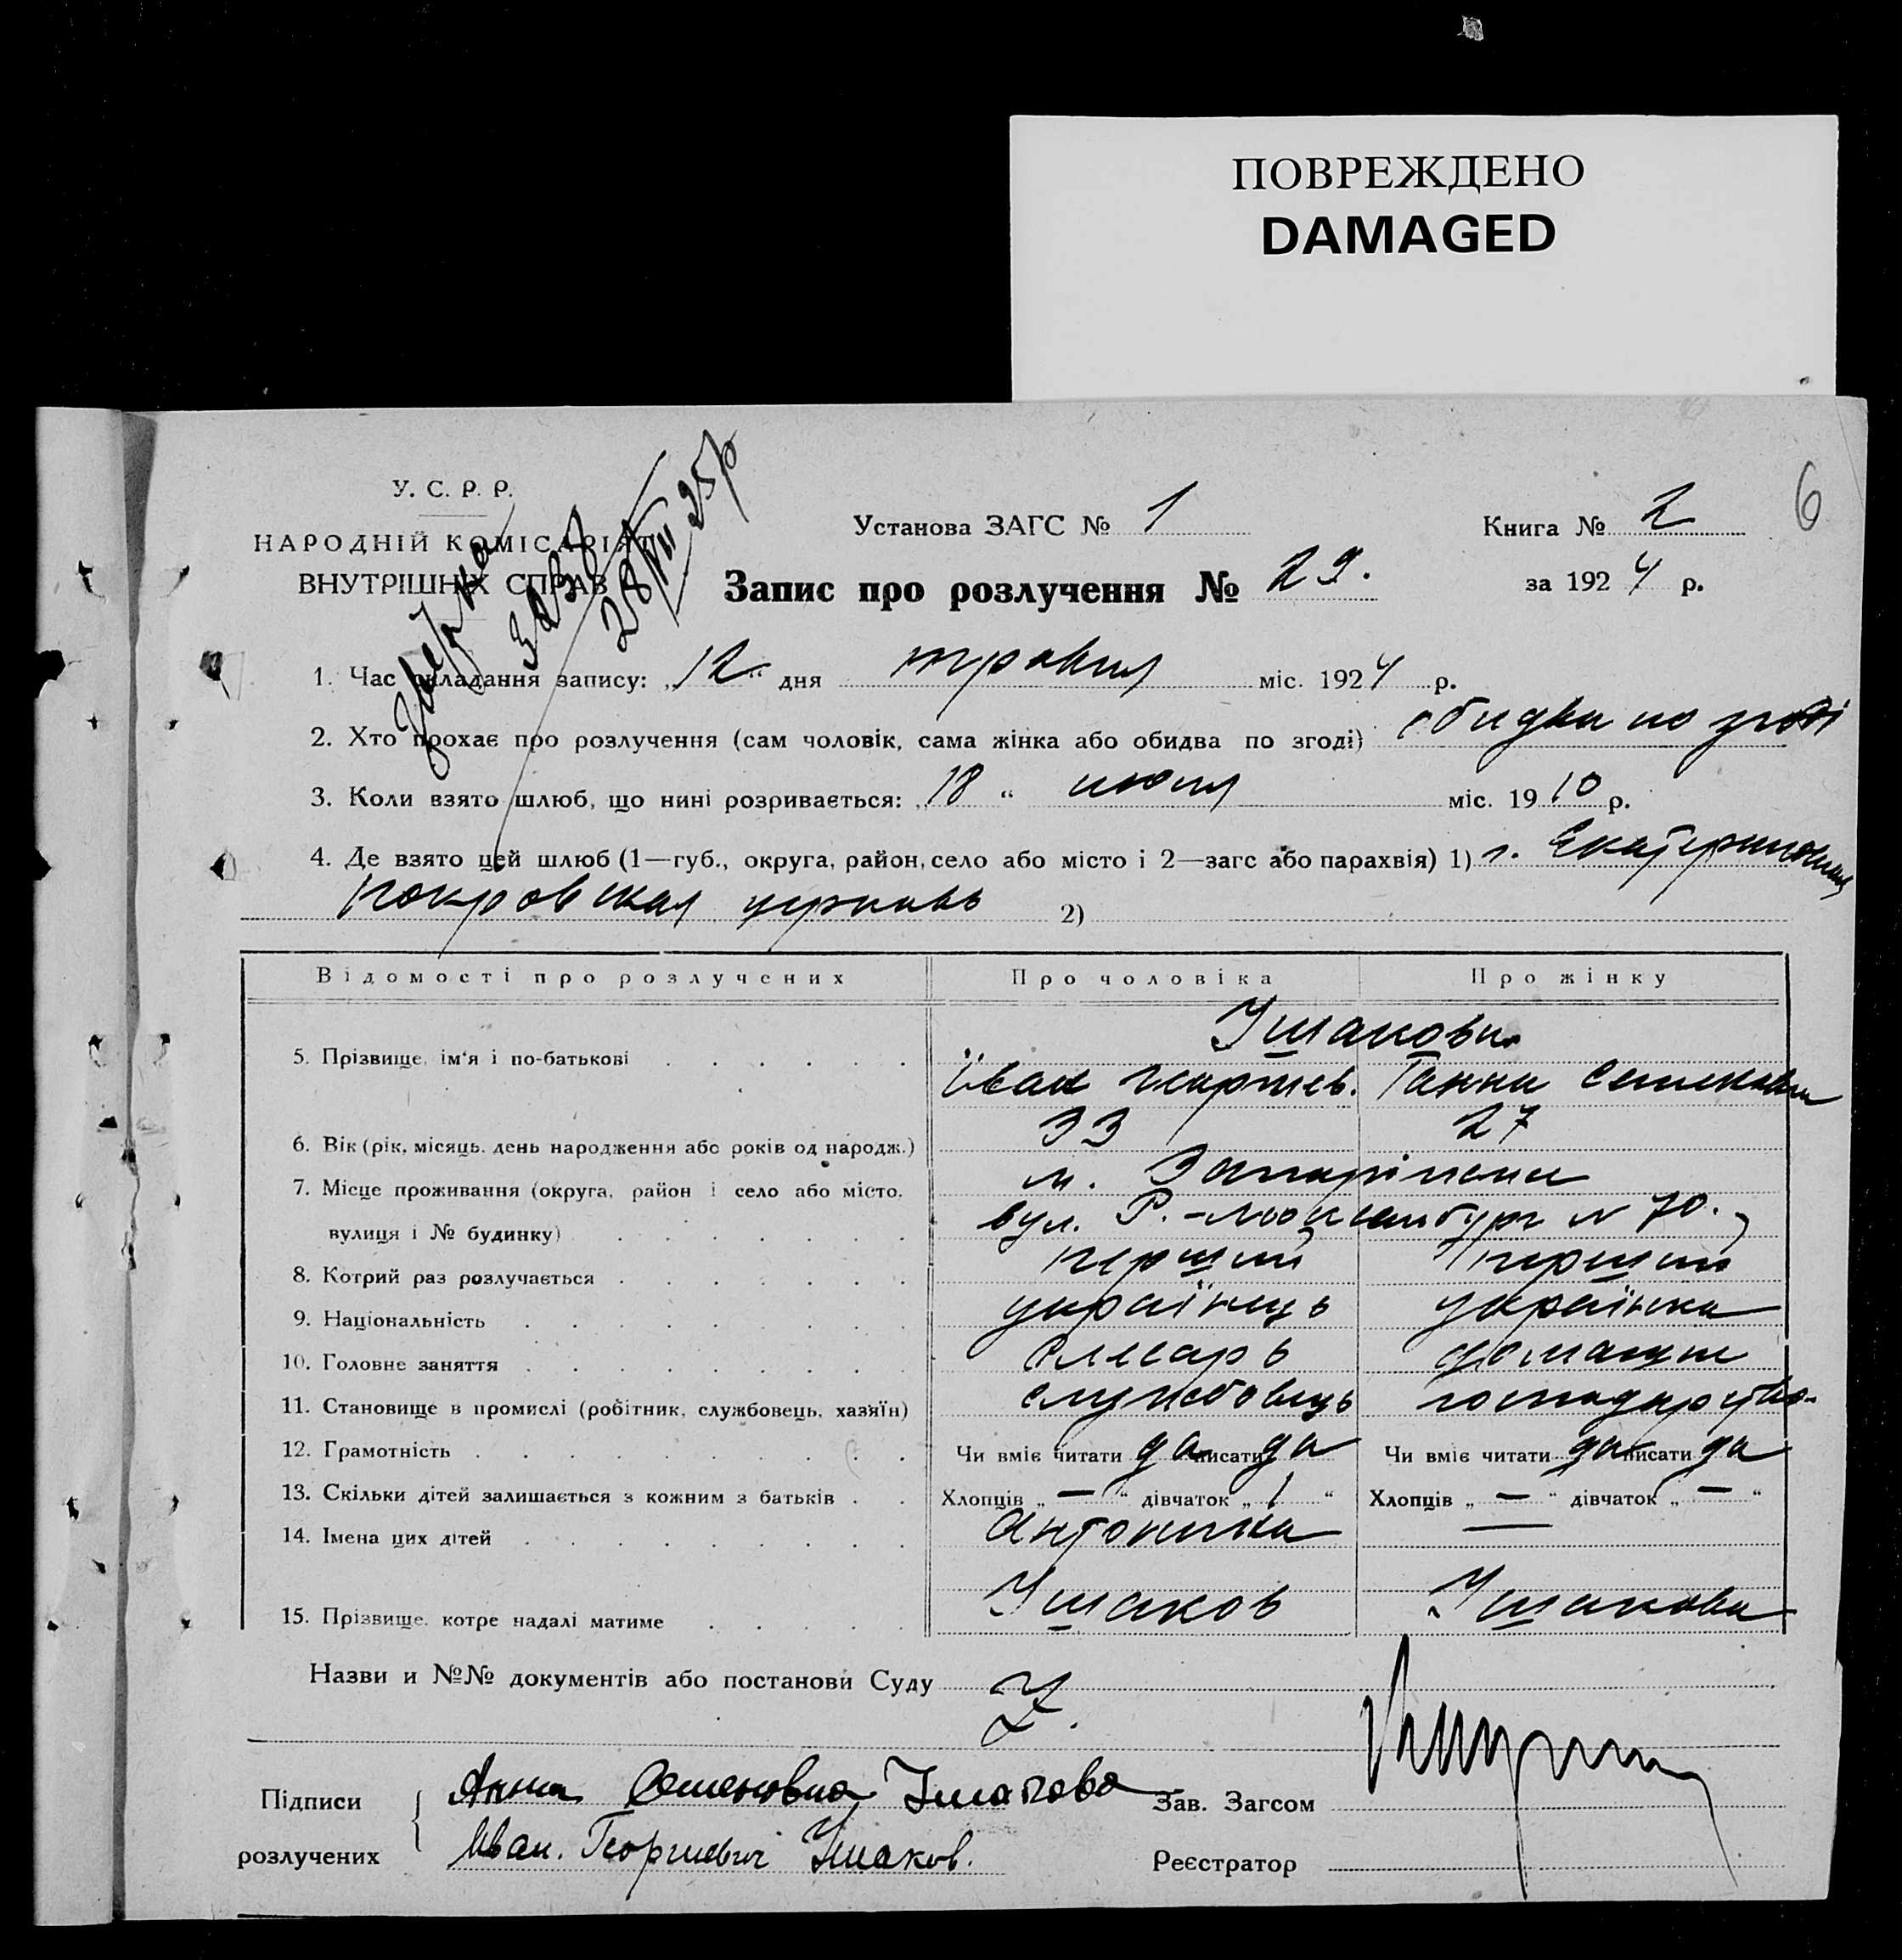 ПОВРЕЖДЕНО
DAMAGED
6
У. С. Р. Р.
НАРОДНІЙ КОМІСАРІЯТ
ВНУТРІШНІХ СПРАВ
28/VII 25 р
Установа ЗАГС № 1
Книга № 2
Запис про розлучення № 29.
за 1924 р.
1. Час складання запису: „12“ дня травня міс. 1924 р.
2. Хто прохає про розлучення (сам чоловік, сама жінка або обидва по згоді) обидва по згоді
3. Коли взято шлюб, що нині розривається: „18“ июля міс. 1910 р.
4. Де взято цей шлюб (1—губ., округа, район, село або місто і 2—загс або парахвія) 1) г. Екатеринослав
Покровская церковь 2)
Відомості про розлучених Про чоловіка Про жінку
Ушакови
5. Прізвище, ім'я і по-батькові Іван Георгиев. Ганна Семеновна
6. Вік (рік, місяць, день народження або років од народж.) 33 27
7. Місце проживання (округа, район і село або місто, м. Запоріжжя
вулиця і № будинку) вул. Р.-Люксембург № 70.
8. Котрий раз розлучається перший перший
9. Національність українець українка
10. Головне заняття слесарь домашне
11. Становище в промислі (робітник, службовець, хазяїн) службовець господарство
12. Грамотність Чи вміє читати да писати да Чи вміє читати да писати да
13. Скільки дітей залишається з кожним з батьків Хлопців „—“ дівчаток „1“ Хлопців „—“ дівчаток „—“
14. Імена цих дітей Антонина —
15. Прізвище, котре надалі матиме Ушаков Ушакова
Назви и №№ документів або постанови Суду
Підписи Анна Семеновна Ушакова Зав. Загсом
розлучених Иван. Георгиевич Ушаков. Реєстратор